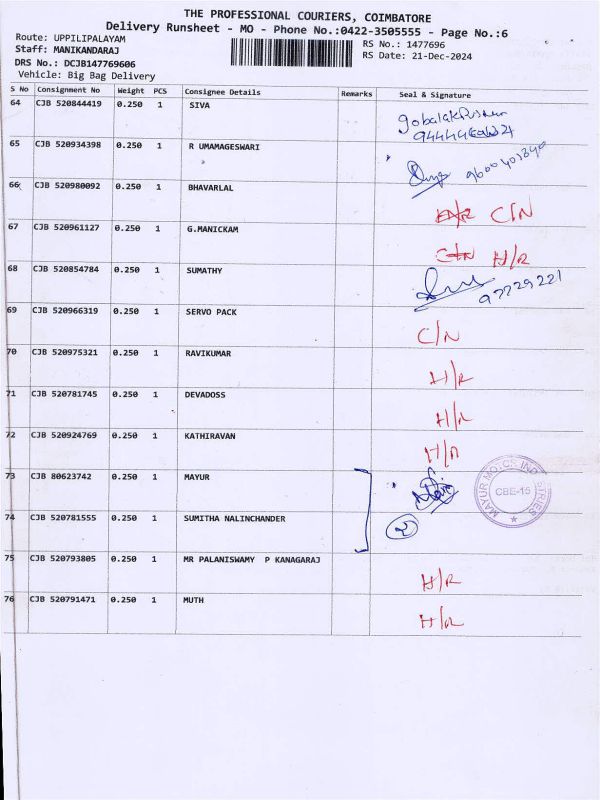 THE PROFESSIONAL COURIERS, COIMBATORE
Delivery Runsheet - MO - Phone No.:0422-3505555 - Page No.:6
Route: UPPILIPALAYAM
Staff: MANIKANDARAJ
DRS No.: DCJB147769606
Vehicle: Big Bag Delivery
RS No.: 1477696
RS Date: 21-Dec-2024
S No Consignment No Weight PCS Consignee Details Remarks Seal & Signature
64 CJB 520844419 0.250 1 SIVA
65 CJB 520934398 0.250 1 R UMAMAGESWARI
66 CJB 520980092 0.250 1 BHAVARLAL C/N
67 CJB 520961127 0.250 1 G.MANICKAM C/N H/R
68 CJB 520854784 0.250 1 SUMATHY
69 CJB 520966319 0.250 1 SERVO PACK C/N
70 CJB 520975321 0.250 1 RAVIKUMAR H/R
71 CJB 520781745 0.250 1 DEVADOSS H/R
72 CJB 520924769 0.250 1 KATHIRAVAN H/R
73 CJB 80623742 0.250 1 MAYUR
MAYUR MOTOR INDUSTRIES
CBE-15
74 CJB 520781555 0.250 1 SUMITHA NALINCHANDER 2
75 CJB 520793805 0.250 1 MR PALANISWAMY P KANAGARAJ H/R
76 CJB 520791471 0.250 1 MUTH H/R